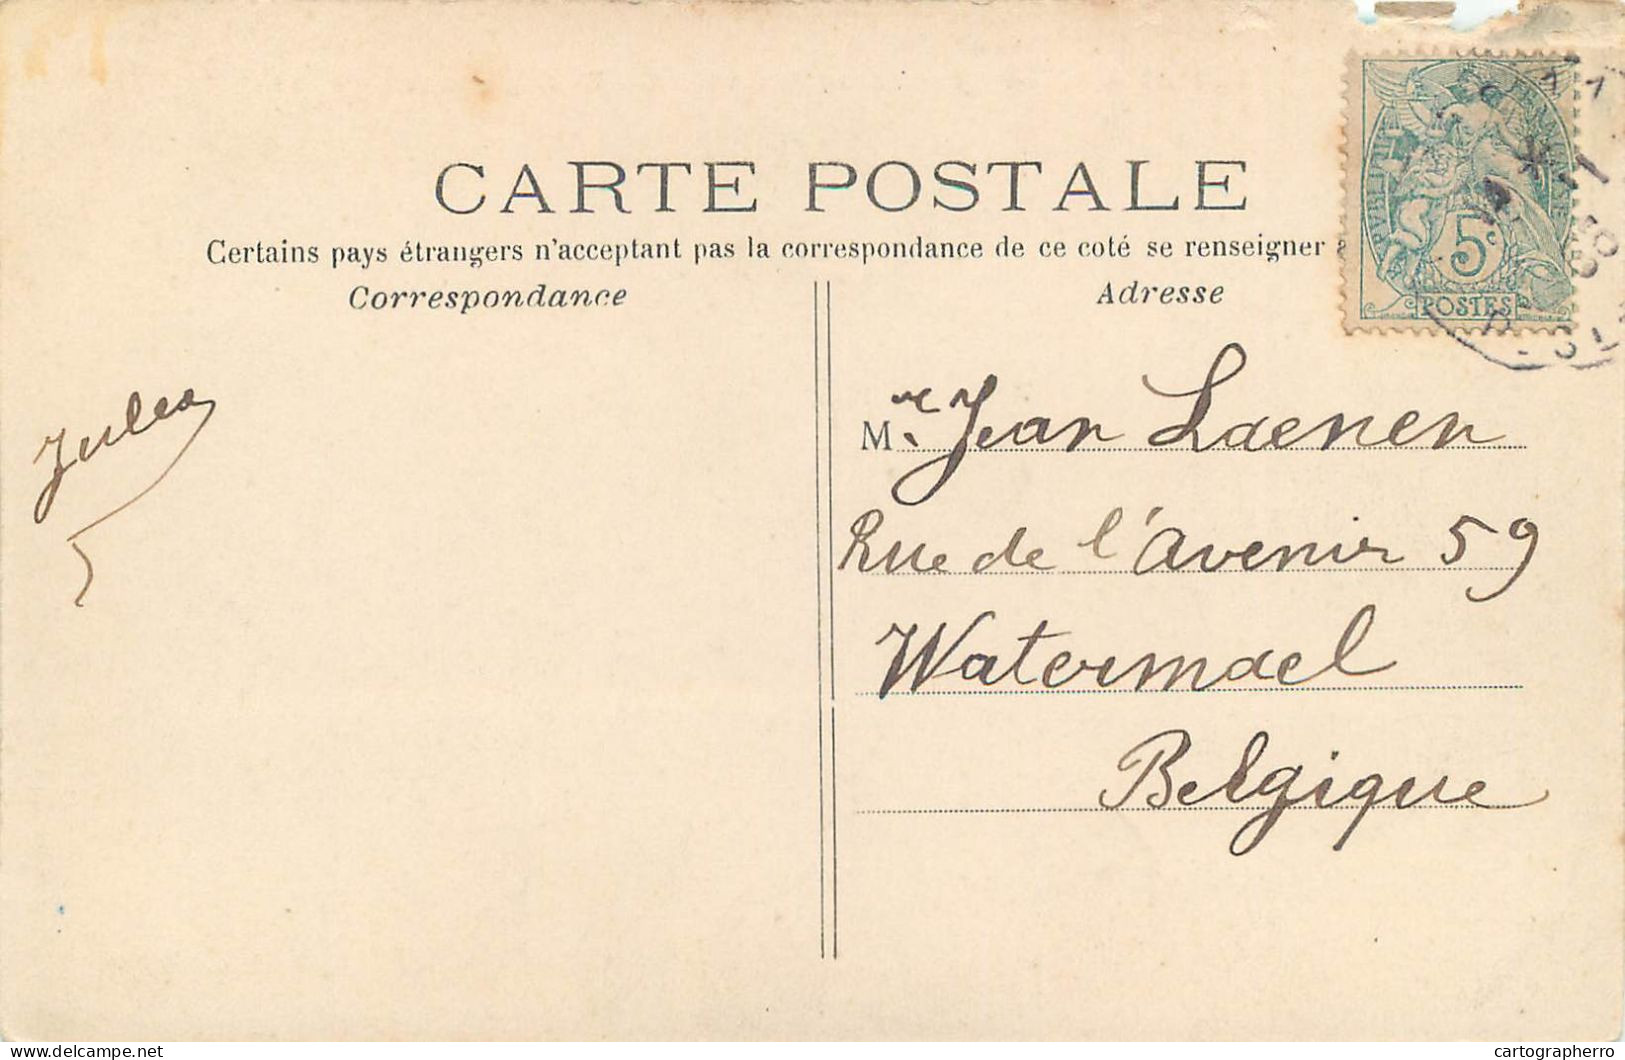 CARTE POSTALE
Certains pays étrangers n'acceptant pas la correspondance de ce coté se renseigner
Correspondance
Adresse
REPUBLIQUE FRANÇAISE
5c
POSTES
Jules
Mr Jean Laenen
Rue de l'Avenir 59
Watermael
Belgique
delcampe.net
cartographerro